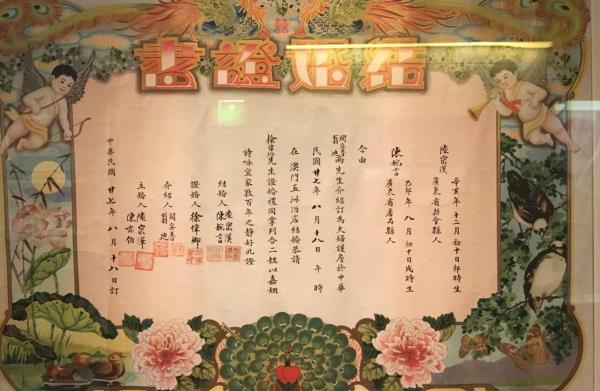 結婚證書
陸宗漢
廣東省新會縣人
辛亥年十二月初十日卯時生
陳婉言
廣東省番禺縣人
乙卯年八月初十日戌時生
今由
先生介紹訂為夫婦謹詹於中華
民國廿七年八月十八日午時
在澳門五洲酒店結婚恭請
徐偉卿先生證婚禮同掌判合二姓以嘉姻
詩詠宜家敦百年之靜好此證
結婚人
陸宗漢
陳婉言
證婚人 徐偉卿
介紹人
主婚人
陸宗澤
陳亦伯
中華民國廿七年八月十八日訂